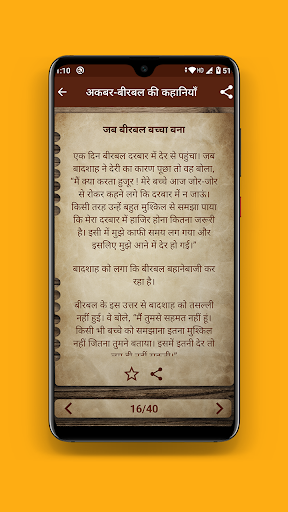 :10 51
अकबर-बीरबल की कहानियाँ
जब बीरबल बच्चा बना
एक दिन बीरबल दरबार में देर से पहुंचा। जब
बादशाह ने देरी का कारण पूछा तो वह बोला,
"मैं क्या करता हुजूर ! मेरे बच्चे आज जोर-जोर
से रोकर कहने लगे कि दरबार में न जाऊं।
किसी तरह उन्हें बहुत मुश्किल से समझा पाया
कि मेरा दरबार में हाजिर होना कितना जरूरी
है। इसी में मुझे काफी समय लग गया और
इसलिए मुझे आने में देर हो गई।"
बादशाह को लगा कि बीरबल बहानेबाजी कर
रहा है।
बीरबल के इस उत्तर से बादशाह को तसल्ली
नहीं हुई। वे बोले, "मैं तुमसे सहमत नहीं हूं।
किसी भी बच्चे को समझाना इतना मुश्किल
नहीं जितना तुमने बताया। इसमें इतनी देर तो
16/40